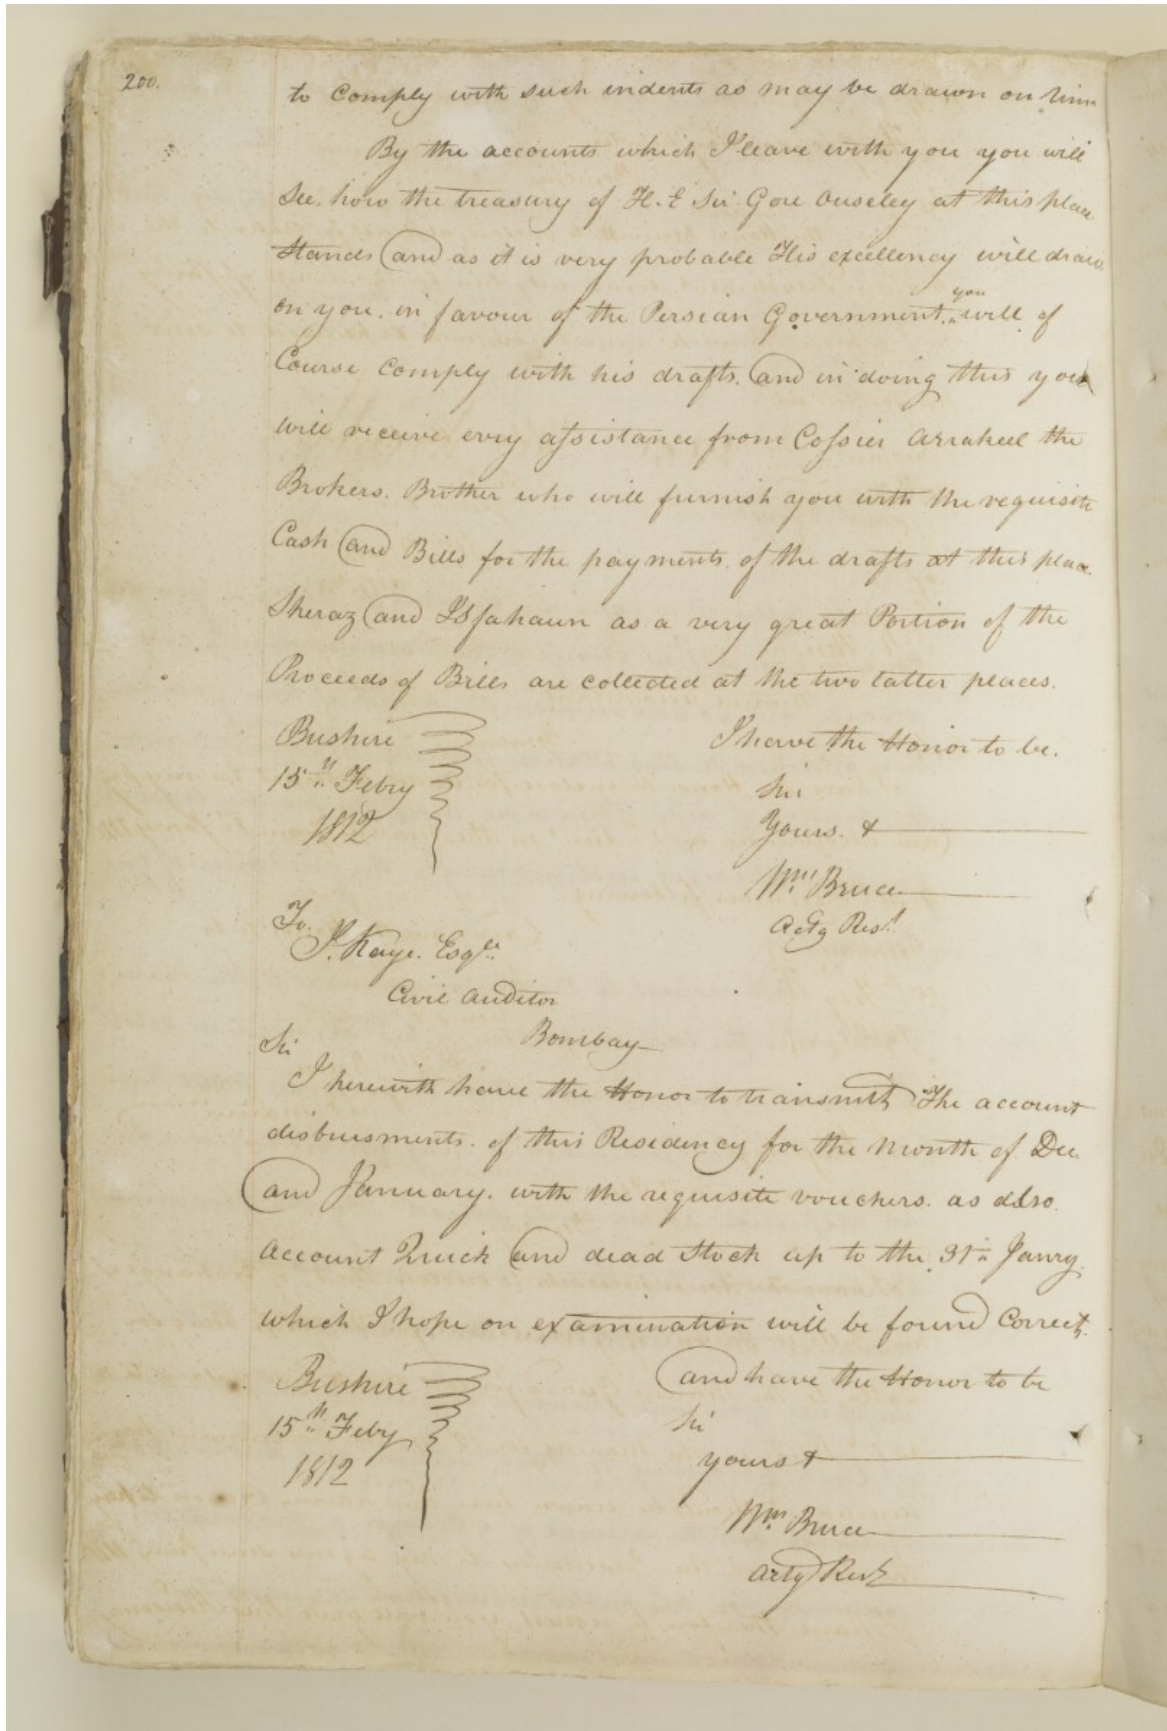 200.
to comply with such indents as may be drawn on him
By the accounts which I leave with you you will
see. how the treasury of H. E Sir Gore Ouseley at this place
Stands and as it is very probable His excellency will draw
you
on you. in favour of the Persian Government. will of
Course comply with his drafts. and in doing this you
will receive evry assistance from Cossier Arrakeel the
Brokers. Brother who will furnish you with the requisite
Cash and Bills for the payments of the drafts at this place.
Sheraz and Isfahaun as a very great Portion of the
Proceeds of Bills are collected at the two latter places.
Bushire
I have the Honor to be.
15th Febry
Sir
1812
Yours. &
Wm Bruce
Actg Rest.
To.
J. Kaye. Esqre.
Civil Auditor
Bombay
Sir
I herewith have the Honor to transmit The account
disbursments. of this Residency for the Month of Dec
and January. with the requisite vouchers. as also.
Account Quick and dead Stock up to the 31st Janry
which I hope on examination will be found Correct.
Bushire
and have the Honor to be
15th Feby
Sir
1812
yours &
Wm Bruce
Actg Rest